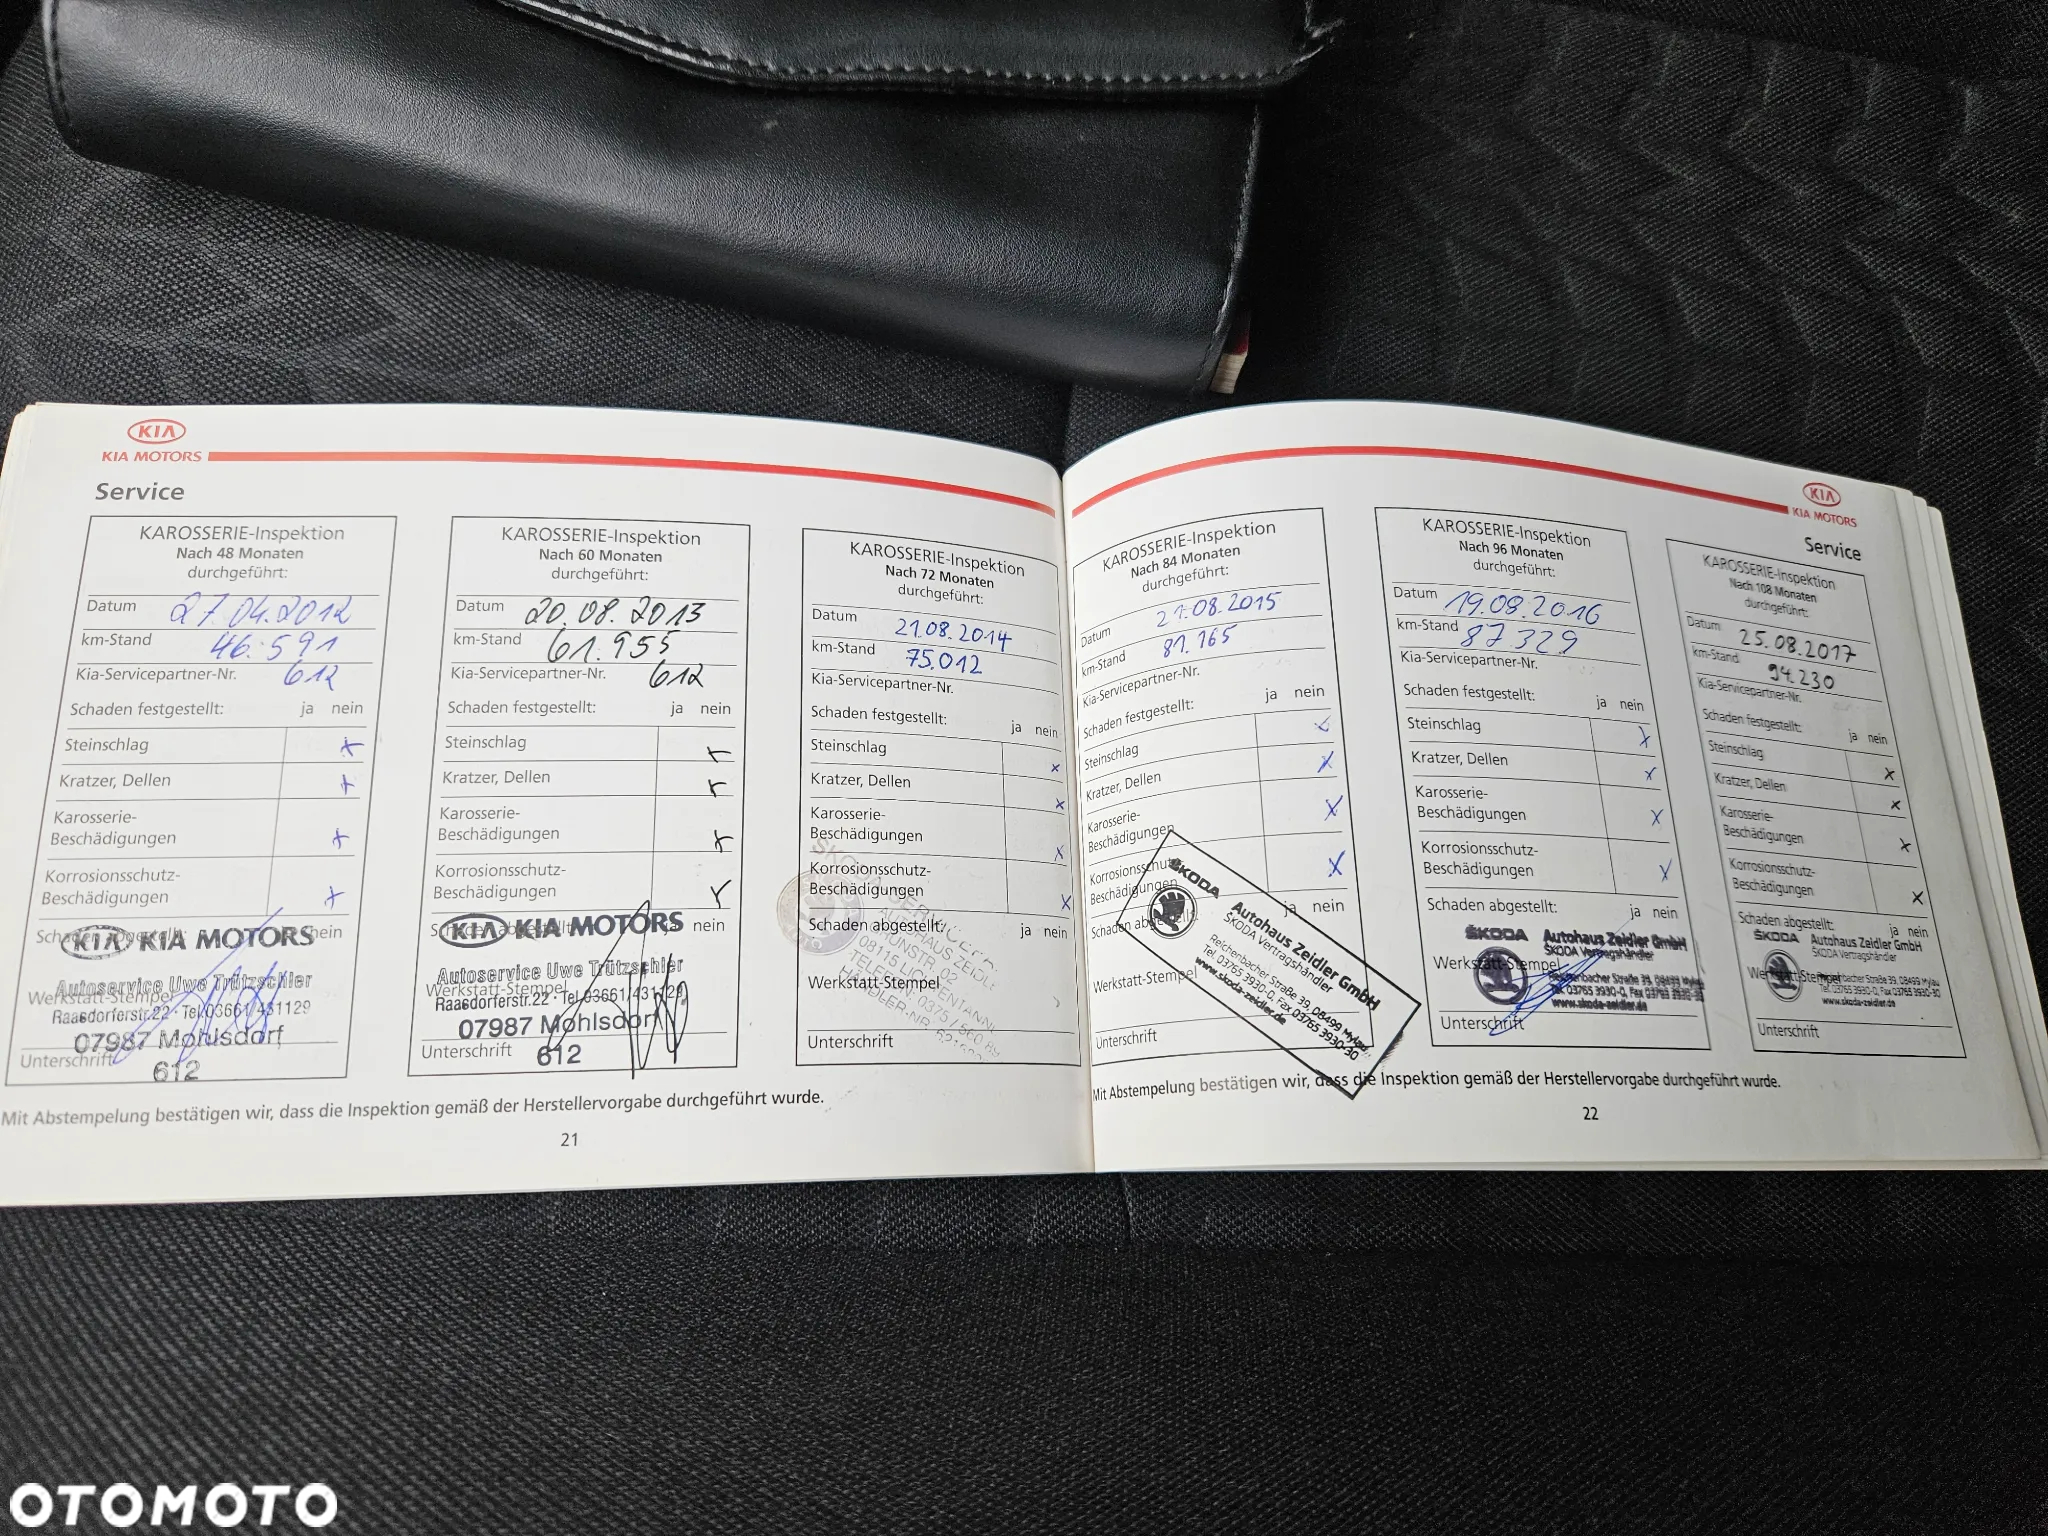 KIA
KIA MOTORS
Service
KAROSSERIE-Inspektion
Nach 48 Monaten
durchgeführt:
Datum 27.04.2012
km-Stand 46.591
Kia-Servicepartner-Nr. 612
Schaden festgestellt: ja nein
Steinschlag x
Kratzer, Dellen x
Karosserie-
Beschädigungen x
Korrosionsschutz-
Beschädigungen x
Schaden abgestellt: nein
KIA KIA MOTORS
Autoservice Uwe Trützschler
Werkstatt-Stempel
Raasdorferstr.22 · Tel.03661/431129
07987 Mohlsdorf
Unterschrift
612
KAROSSERIE-Inspektion
Nach 60 Monaten
durchgeführt:
Datum 20.08.2013
km-Stand 61.955
Kia-Servicepartner-Nr. 612
Schaden festgestellt: ja nein
Steinschlag x
Kratzer, Dellen x
Karosserie-
Beschädigungen x
Korrosionsschutz-
Beschädigungen x
Schaden abgestellt: ja nein
KIA KIA MOTORS
Autoservice Uwe Trützschler
Werkstatt-Stempel
Raasdorferstr.22 · Tel.03661/431129
07987 Mohlsdorf
Unterschrift
612
KAROSSERIE-Inspektion
Nach 72 Monaten
durchgeführt:
Datum 21.08.2014
km-Stand 75.012
Kia-Servicepartner-Nr.
Schaden festgestellt:
ja nein
Steinschlag x
Kratzer, Dellen x
Karosserie-
Beschädigungen x
Korrosionsschutz-
Beschädigungen x
Schaden abgestellt: ja nein
SKODA
AUTOHAUS
02
08115
TELEFON 0375 / 560
HÄNDLER-NR.
Werkstatt-Stempel
Unterschrift
Mit Abstempelung bestätigen wir, dass die Inspektion gemäß der Herstellervorgabe durchgeführt wurde.
21
KIA
KIA MOTORS
Service
KAROSSERIE-Inspektion
Nach 84 Monaten
durchgeführt:
Datum 21.08.2015
km-Stand 81.165
Kia-Servicepartner-Nr.
Schaden festgestellt: ja nein
Steinschlag x
Kratzer, Dellen x
Karosserie-
Beschädigungen x
Korrosionsschutz-
Beschädigungen x
Schaden abgestellt: ja nein
ŠKODA
Autohaus Zeidler GmbH
ŠKODA Vertragshändler
Reichenbacher Straße 39, 08499 Mylau
Tel. 03765 3930-0, Fax 03765 3930-30
www.skoda-zeidler.de
Werkstatt-Stempel
Unterschrift
KAROSSERIE-Inspektion
Nach 96 Monaten
durchgeführt:
Datum 19.08.2016
km-Stand 87329
Kia-Servicepartner-Nr.
Schaden festgestellt:
ja nein
Steinschlag x
Kratzer, Dellen x
Karosserie-
Beschädigungen x
Korrosionsschutz-
Beschädigungen x
Schaden abgestellt: ja nein
ŠKODA Autohaus Zeidler GmbH
ŠKODA Vertragshändler
Werkstatt-Stempel
Reichenbacher Straße 39, 08499 Mylau
Tel. 03765 3930-0, Fax 03765 3930-30
www.skoda-zeidler.de
Unterschrift
KAROSSERIE-Inspektion
Nach 108 Monaten
durchgeführt:
Datum 25.08.2017
km-Stand 94.230
Kia-Servicepartner-Nr.
Schaden festgestellt:
ja nein
Steinschlag x
Kratzer, Dellen x
Karosserie-
Beschädigungen x
Korrosionsschutz-
Beschädigungen x
Schaden abgestellt: ja nein
ŠKODA Autohaus Zeidler GmbH
ŠKODA Vertragshändler
Werkstatt-Stempel
Reichenbacher Straße 39, 08499 Mylau
Tel. 03765 3930-0, Fax 03765 3930-30
www.skoda-zeidler.de
Unterschrift
Mit Abstempelung bestätigen wir, dass die Inspektion gemäß der Herstellervorgabe durchgeführt wurde.
22
OTOMOTO